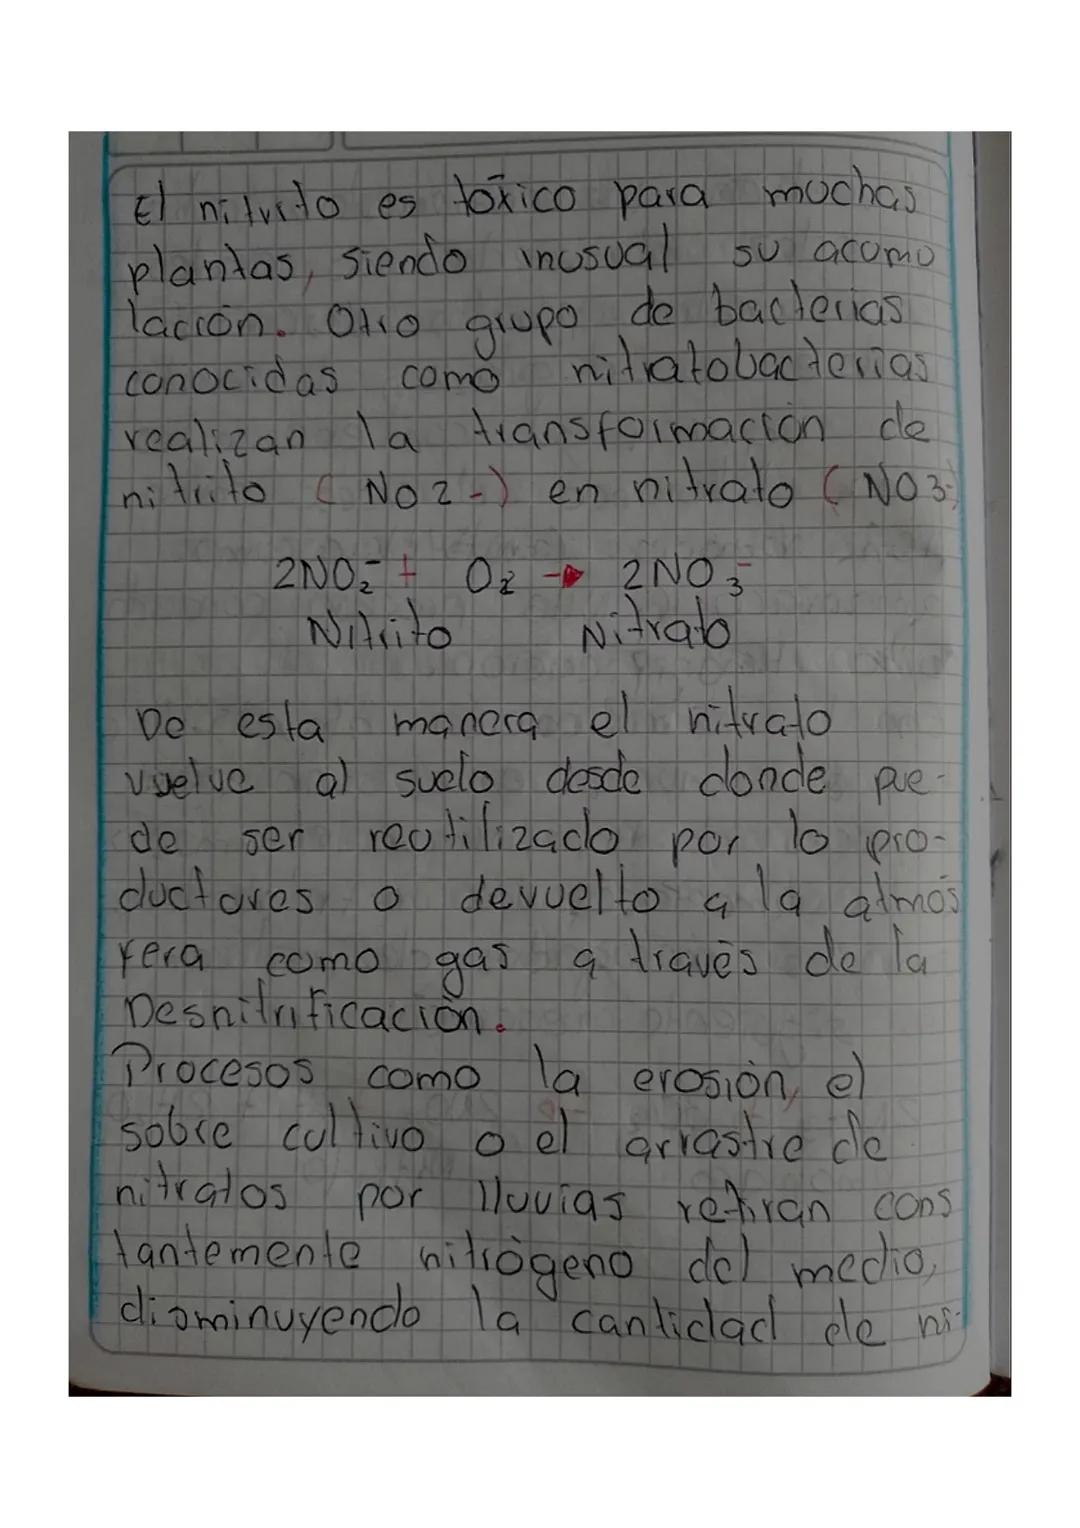 El nitrito es tóxico para muchas
plantas, siendo inusual su acumo
lación. Otro grupo de bacterias
conocidas como nitratobacterias
realizan la transformación de
nitrito (NO2-) en nitrato (NO3-)
2NO₂⁻ + O₂ → 2NO₃⁻
Nitrito Nitrato
De esta manera el nitrato
vuelve al suelo desde donde pue-
de ser reutilizado por lo pro-
ductores o devuelto a la atmós
fera como gas a través de la
Desnitrificación.
Procesos como la erosión, el
sobre cultivo o el arrastre de
nitratos por lluvias retiran cons
tantemente nitrógeno del medio,
disminuyendo la cantidad de ni-